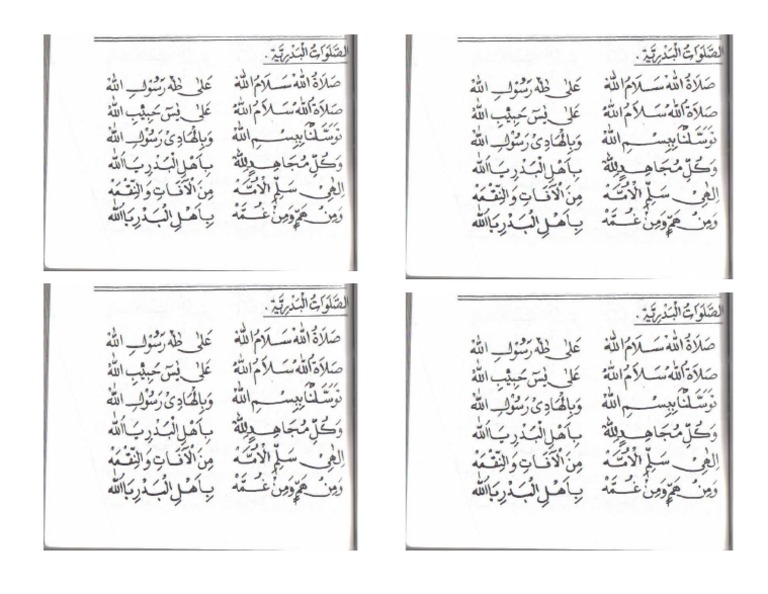 الصَّلَوَاتُ الْبَدْرِيَّة .
صَلَاةُ اللهِ سَلَامُ اللهِ عَلَى طٰهٰ رَسُوْلِ اللهِ
صَلَاةُ اللهِ سَلَامُ اللهِ عَلَى يٰسٓ حَبِيْبِ اللهِ
تَوَسَّلْنَا بِبِسْمِ اللهِ وَبِالْهَادِىْ رَسُوْلِ اللهِ
وَكُلِّ مُجَاهِدٍ لِلّٰهِ بِاَهْلِ الْبَدْرِ يَا اَللهُ
اِلٰهِىْ سَلِّمِ الْاُمَّهْ مِنَ الْاٰفَاتِ وَالنِّقْمَهْ
وَمِنْ هَمٍّ وَمِنْ غُمَّهْ بِاَهْلِ الْبَدْرِ يَا اَللهُ
الصَّلَوَاتُ الْبَدْرِيَّة .
صَلَاةُ اللهِ سَلَامُ اللهِ عَلَى طٰهٰ رَسُوْلِ اللهِ
صَلَاةُ اللهِ سَلَامُ اللهِ عَلَى يٰسٓ حَبِيْبِ اللهِ
تَوَسَّلْنَا بِبِسْمِ اللهِ وَبِالْهَادِىْ رَسُوْلِ اللهِ
وَكُلِّ مُجَاهِدٍ لِلّٰهِ بِاَهْلِ الْبَدْرِ يَا اَللهُ
اِلٰهِىْ سَلِّمِ الْاُمَّهْ مِنَ الْاٰفَاتِ وَالنِّقْمَهْ
وَمِنْ هَمٍّ وَمِنْ غُمَّهْ بِاَهْلِ الْبَدْرِ يَا اَللهُ
الصَّلَوَاتُ الْبَدْرِيَّة .
صَلَاةُ اللهِ سَلَامُ اللهِ عَلَى طٰهٰ رَسُوْلِ اللهِ
صَلَاةُ اللهِ سَلَامُ اللهِ عَلَى يٰسٓ حَبِيْبِ اللهِ
تَوَسَّلْنَا بِبِسْمِ اللهِ وَبِالْهَادِىْ رَسُوْلِ اللهِ
وَكُلِّ مُجَاهِدٍ لِلّٰهِ بِاَهْلِ الْبَدْرِ يَا اَللهُ
اِلٰهِىْ سَلِّمِ الْاُمَّهْ مِنَ الْاٰفَاتِ وَالنِّقْمَهْ
وَمِنْ هَمٍّ وَمِنْ غُمَّهْ بِاَهْلِ الْبَدْرِ يَا اَللهُ
الصَّلَوَاتُ الْبَدْرِيَّة .
صَلَاةُ اللهِ سَلَامُ اللهِ عَلَى طٰهٰ رَسُوْلِ اللهِ
صَلَاةُ اللهِ سَلَامُ اللهِ عَلَى يٰسٓ حَبِيْبِ اللهِ
تَوَسَّلْنَا بِبِسْمِ اللهِ وَبِالْهَادِىْ رَسُوْلِ اللهِ
وَكُلِّ مُجَاهِدٍ لِلّٰهِ بِاَهْلِ الْبَدْرِ يَا اَللهُ
اِلٰهِىْ سَلِّمِ الْاُمَّهْ مِنَ الْاٰفَاتِ وَالنِّقْمَهْ
وَمِنْ هَمٍّ وَمِنْ غُمَّهْ بِاَهْلِ الْبَدْرِ يَا اَللهُ